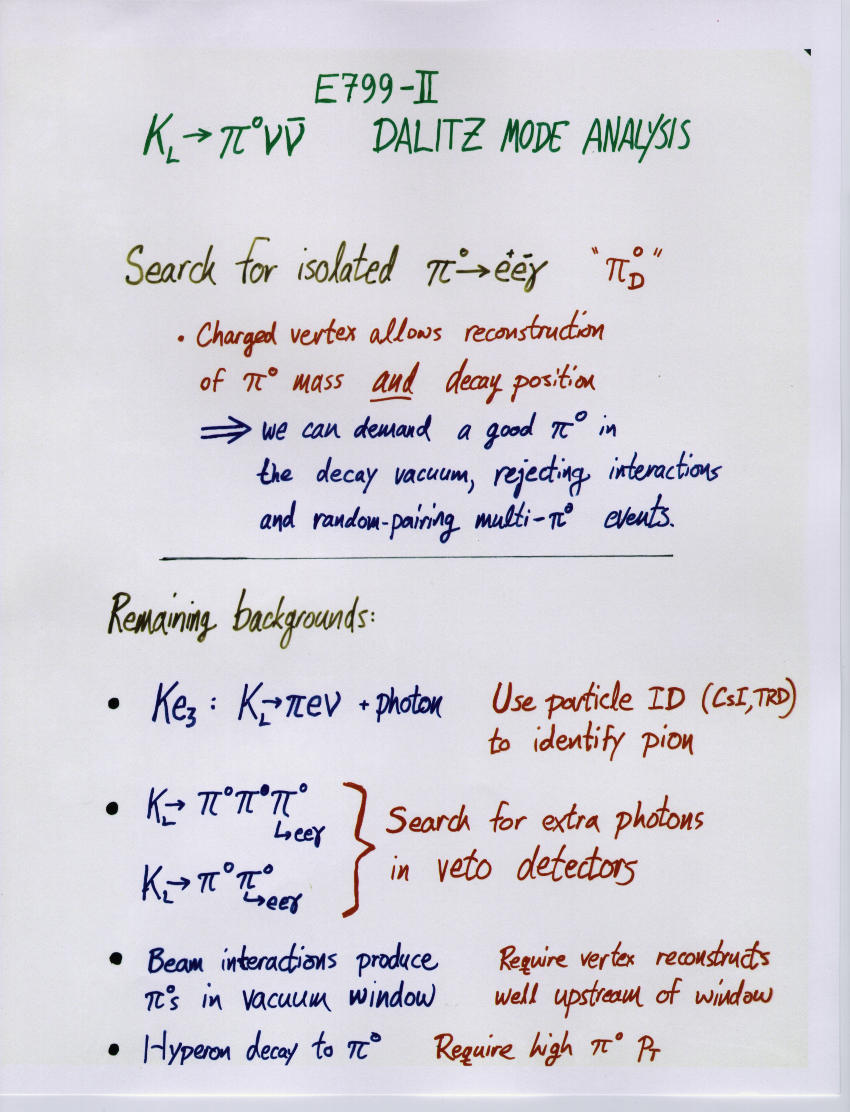 E799-II
K_L → π⁰νν̄ DALITZ MODE ANALYSIS
Search for isolated π⁰→e⁺e⁻γ "π⁰_D"
• Charged vertex allows reconstruction
of π⁰ mass and decay position
⟹ we can demand a good π⁰ in
the decay vacuum, rejecting interactions
and random-pairing multi-π⁰ events.
Remaining backgrounds:
• Ke₃ : K_L→πeν + photon Use particle ID (CsI, TRD)
to identify pion
• K_L→ π⁰π⁰π⁰
↳eeγ
K_L→ π⁰π⁰
↳eeγ
} Search for extra photons
in veto detectors
• Beam interactions produce Require vertex reconstructs
π⁰s in vacuum window well upstream of window
• Hyperon decay to π⁰ Require high π⁰ P_T